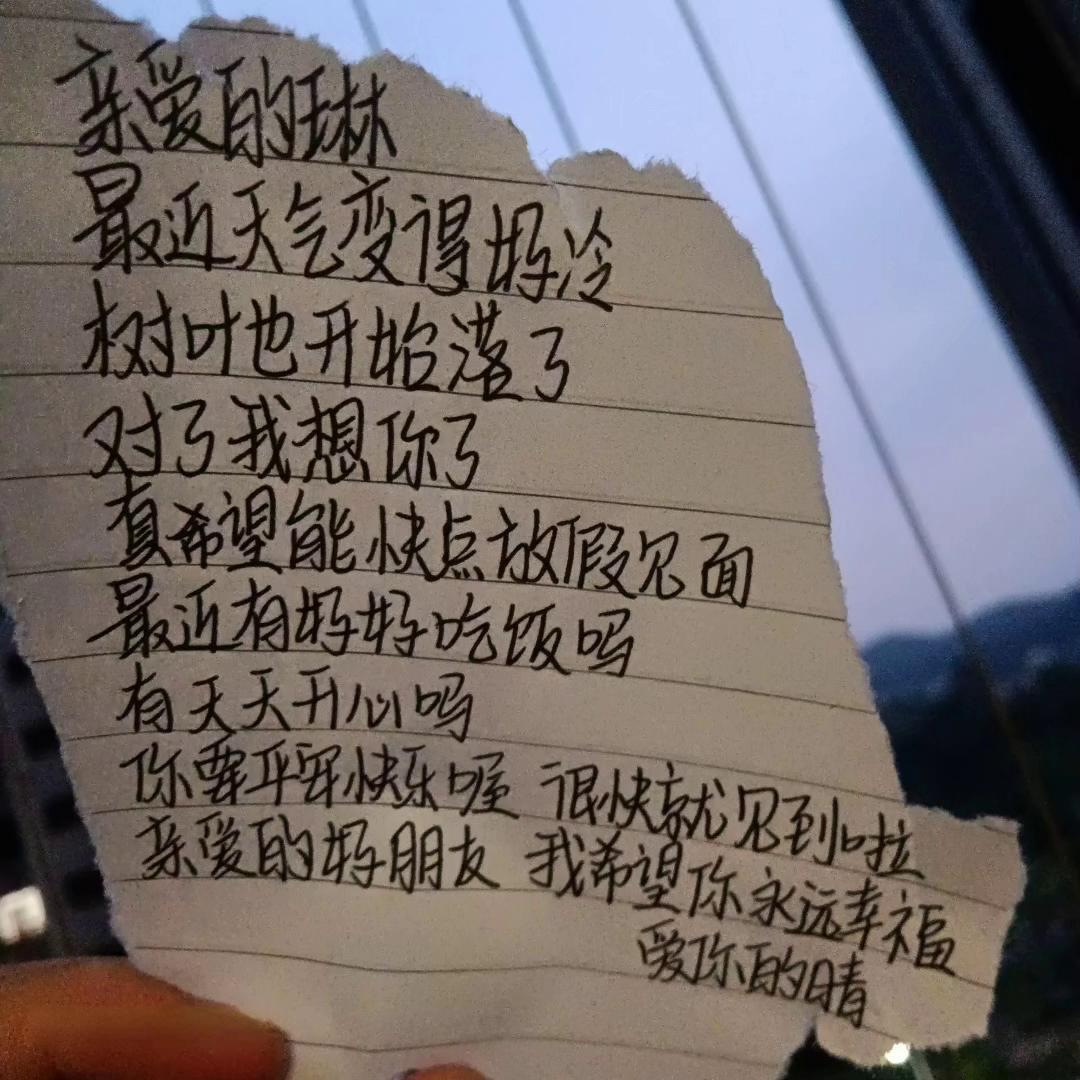 亲爱的琳
最近天气变得好冷
树叶也开始落了
对了我想你了
真希望能快点放假见面
最近有好好吃饭吗
有天天开心吗
你要平安快乐喔 很快就见到啦
亲爱的好朋友 我希望你永远幸福
爱你的晴